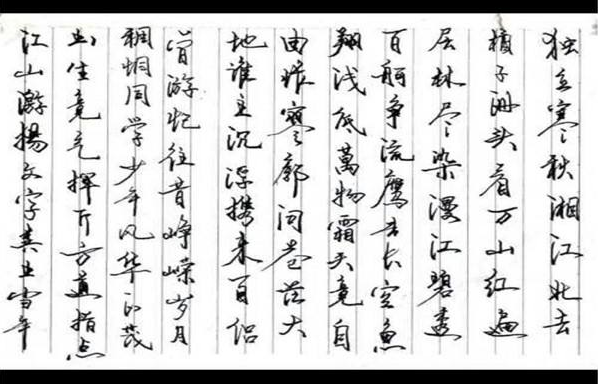 独立寒秋湘江北去
橘子洲头看万山红遍
层林尽染漫江碧透
百舸争流鹰击长空鱼
翔浅底萬物霜天竟自
由怅寥廓问苍茫大
地谁主沉浮携来百侣
曾游忆往昔峥嵘岁月
稠恰同学少年风华正茂
书生意气挥斥方遒指点
江山激揚文字粪土當年